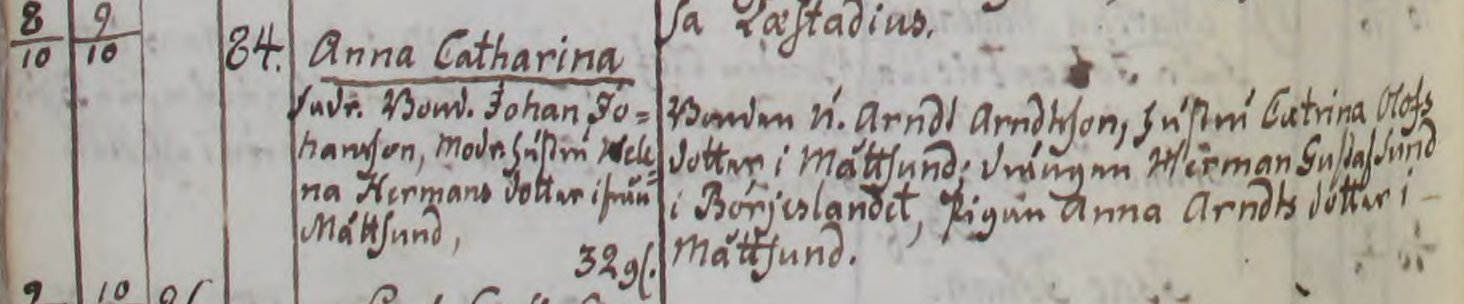 sa Læstadius.
8 9
10 10
84. Anna Catharina
fadr. Bond. Johan Jo=
hansson, Modr. hustru Hele=
na Hermans dotter ifrån
Måttsund,
32 åhr.
Bonden N. Arndt Arndtsson, hustru Catrina Olofs
dotter i Måttsund; drängen Herman Gustafsund
i Börjeslandet, Pigan Anna Arndts dotter i
Måttsund.
9 10